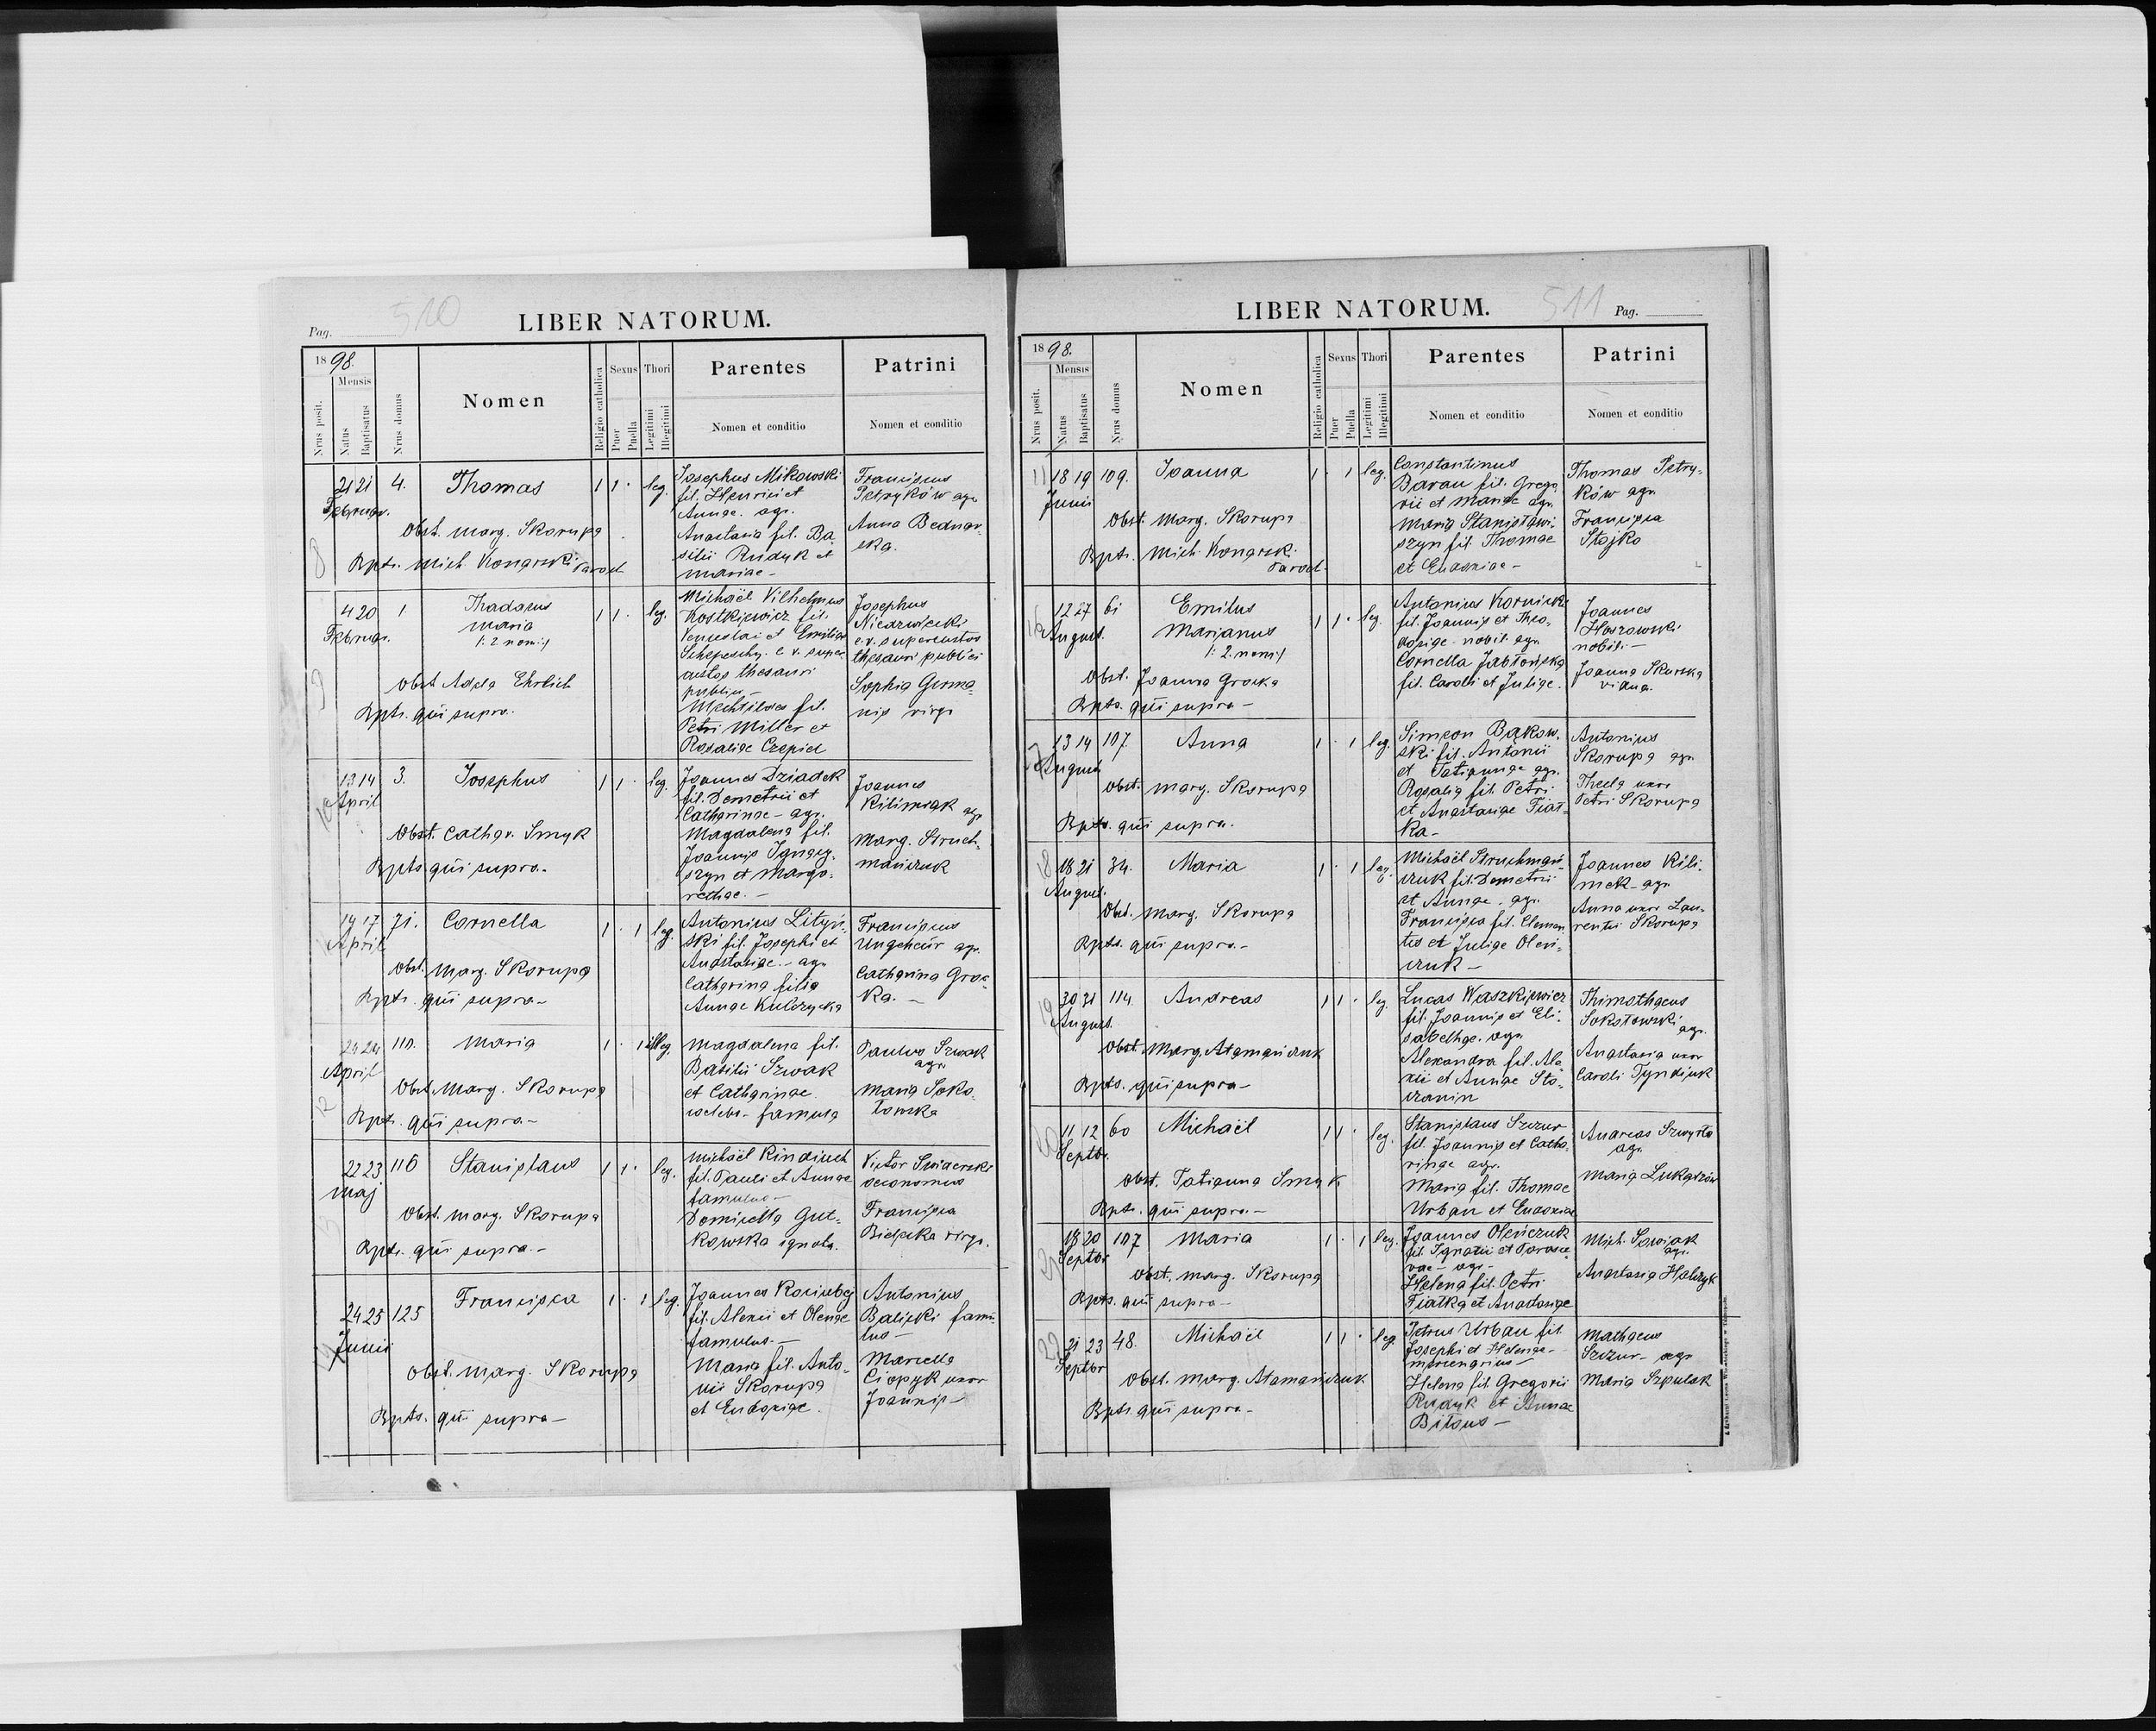 Pag. 510
LIBER NATORUM.
1898.
Mensis
Nrus posit.
Natus
Baptisatus
Nrus domus
Nomen
Religio catholica
Sexus
Puer
Puella
Thori
Legitimi
Illegitimi
Parentes
Nomen et conditio
Patrini
Nomen et conditio
8
21 21 4. Thomas 1 1 · leg.
Februar.
Obst. Marg. Skorupa
Bpts. Mich. Konarski Paroch
Josephus Mikowski
fil. Henrici et
Annae. agr.
Anastasia fil. Ba-
silii Rudyk et
Mariae -
Franciscus
Petryków agr.
Anna Bednar-
ska.
9
4 20 1 Thadaeus
Maria
/: 2 nom :/
1 1 · leg.
Februar.
Obst. Adela Ehrlich
Bpts. qui supra.
Michaël Vilhelmus
Kostkiewicz fil.
Venceslai et Emiliae
c. r. super
custos thesauri
publici -
Mechtildes fil.
Petri Miller et
Rosaliae Czepiel
Josephus
Niedzwiecki
c. r. supercustos
thesauri publici
Sophia
virgo
10
13 14 3. Josephus 1 1 · leg.
April
Obst. Cathar. Smyk
Bpts. qui supra.
Joannes Dziadek
fil. Demetrii et
Catharinae - agr.
Magdalena fil.
Joannis Ignacy-
szyn et Marga-
rethae. -
Joannes
Kilimnak agr.
Marg. Struch-
mańczuk
14 17 71. Cornella 1 · 1 leg.
April
Obst. Marg. Skorupa
Bpts. qui supra -
Antonius Lityń-
ski fil. Josephi et
Anastasiae. - agr.
Catharina filia
Annae Kulczycka
Franciscus
Ungeheür agr.
Catharina Groc-
ka. -
12
24 24 110. Maria 1 · 1 illeg.
April
Obst. Marg. Skorupa
Bpts. qui supra -
Magdalena fil.
Basilii Szwak
et Catharinae
coelebs - famula
Paulus Szwak
agr.
Maria Soko-
lowska
13
22 23 116 Stanislaus 1 1 · leg.
Maj
Obst. Marg. Skorupa
Bpts. qui supra. -
Michaël Kindiuch
fil. Pauli et Annae
famulus -
Domicella Gut-
kowska ignota.
Victor Swiderski
oeconomus
Francisca
Bielecka virgo.
14
24 25 125 Francisca 1 · 1 leg.
Junii
Obst. Marg. Skorupa
Bpts. qui supra -
Joannes Kociubej
fil. Alexii et Olenae
famulus. -
Maria fil. Anto-
nii Skorupa
et Eudoxiae.
Antonius
Balicki famu-
lus -
Marcella
Ciopyk uxor
Joannis -
511 Pag.
LIBER NATORUM.
1898.
Mensis
Nrus posit.
Natus
Baptisatus
Nrus domus
Nomen
Religio catholica
Sexus
Puer
Puella
Thori
Legitimi
Illegitimi
Parentes
Nomen et conditio
Patrini
Nomen et conditio
18 19 109. Joanna 1 · 1 leg.
Junii
Obst. Marg. Skorupa
Bpts. Mich. Konarski
Paroch.
Constantinus
Baran fil. Grego-
rii et Mariae agr.
Maria Stanislawi-
szyn fil. Thomae
et Eudoxiae -
Thomas Petry-
ków agr.
Francisca
Stojko
16
12 27 61 Emilus
Marianus
/: 2. nom :/
1 1 · leg.
August.
Obst. Joanna Grocka
Bpts. qui supra -
Antonius Kornicki
fil. Joannis et Theo-
dosiae. nobil. agr.
Cornella Jabłońska
fil. Caroli et Juliae.
Joannes
Hoszowski
nobil. -
Joanna Skurska
vidua.
17
13 14 107. Anna 1 · 1 leg.
August
Obst. Marg. Skorupa
Bpts. qui supra.
Simeon Bąkow-
ski fil. Antonii
et Tatiannae agr.
Rosalia fil. Petri
et Anastasiae Fiał-
ka -
Antonius
Skorupa agr.
Thecla uxor
Petri Skorupa
18
18 21 34. Maria 1 · 1 leg.
August.
Obst. Marg. Skorupa
Bpts. qui supra. -
Michaël Struchmań-
czuk fil. Demetrii
et Annae. agr.
Francisca fil. Clemen-
tis et Juliae Oleni-
czuk -
Joannes Kili-
mek - agr.
Anna uxor Lau-
rentii Skorupa
19
30 31 114. Andreas 1 1 · leg.
August.
Obst. Marg. Atamańczuk
Bpts. qui supra -
Lucas Waszkiewicz
fil. Joannis et Eli-
sabethae. agr.
Alexandra fil. Ale-
xii et Annae Sto-
czanin
Thimothaeus
Sokołowski
agr.
Anastasia uxor
Caroli Tyndiuk
20
11 12 60 Michaël 1 1 · leg.
Septbr.
Obst. Tatianna Smyk
Bpts. qui supra. -
Stanislaus Szczur
fil. Joannis et Catha-
rinae agr.
Maria fil. Thomae
Urban et Eudoxiae
Andreas Szwyrla
agr.
Maria Lukaszów
21
18 20 107 Maria 1 · 1 leg.
Septbr
Obst. Marg. Skorupa
Bpts. qui supra -
Joannes Oleńczuk
fil. Ignatii et Parasce-
vae - agr. -
Helena fil. Petri
Fiałka et Anastasiae
Mich. Sowiak
agr.
Anastasia Halczyk
22
21 23 48. Michaël 1 1 · leg.
Septbr
Obst. Marg. Atamańczuk
Bpts. qui supra -
Petrus Urban fil.
Josephi et Helenae -
mercenarius -
Helena fil. Gregorii
Rudyk et Annae
Bilous -
Mathaeus
Szczur - agr
Maria Szpulak